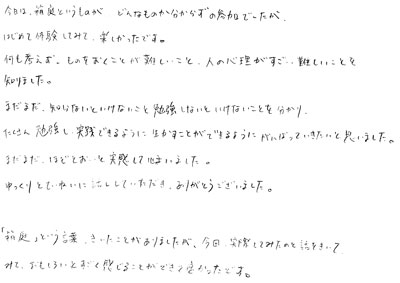 今日は、箱庭というものが どんなものか分からずの参加でしたが、
はじめて体験してみて、楽しかったです。
何も考えず、ものをおくことが難しいこと、人の心理がすごい難しいことを
知りました。
まだまだ、知らないといけないこと勉強しないといけないことを分かり、
たくさん勉強し、実践できるように 生かすことができるように がんばっていきたいと思いました。
まだまだ、ほどとおいと実感してしまいました。
ゆっくりとていねいに話していただき、ありがとうございました。
「箱庭」という言葉、きいたことがありましたが、今回、実際してみたのと話をきいて
みて、おもしろいとすごく感じることができて良かったです。